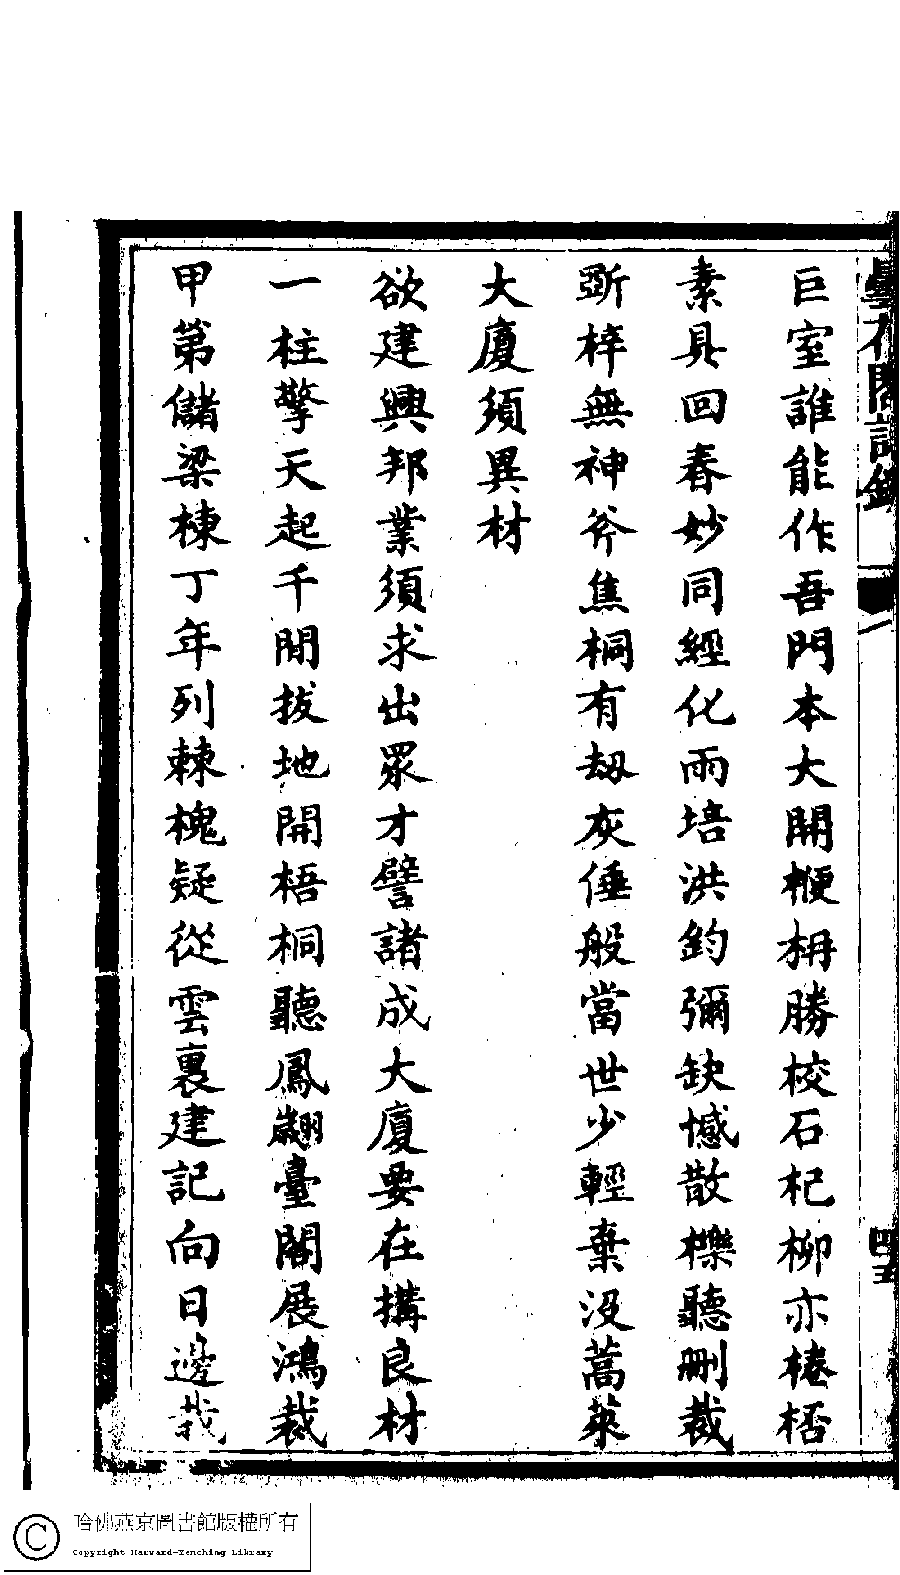 巨室誰能作吾門本大開楩枬勝校石杞柳亦棬桮
素具回春妙同經化雨培洪鈞彌缺憾散櫟聽刪裁
斲梓無神斧焦桐有劫灰倕般當世少輕棄沒蒿萊
大廈須異材
欲建興邦業須求出眾才譬諸成大廈要在搆良材
一柱擎天起千間拔地開梧桐聽鳳翽臺閣展鴻裁
甲第儲梁棟丁年列棘槐疑從雲裏建記向日邊栽
四五
哈佛燕京圖書館版權所有
Copyright Harvard-Yenching Library